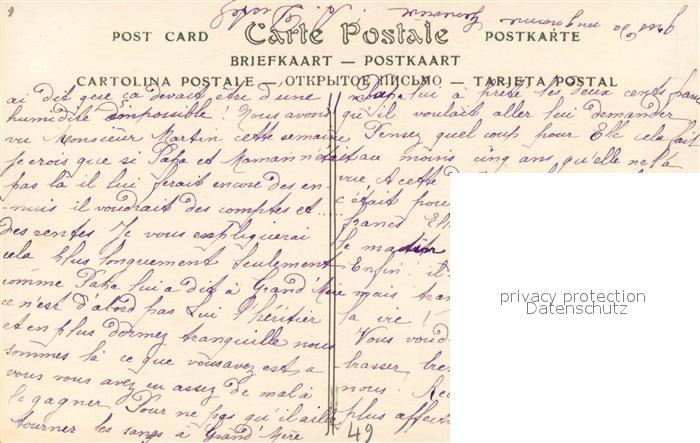 Carte Postale
POST CARD
POSTKARTE
BRIEFKAART — POSTKAART
CARTOLINA POSTALE — ОТКРЫТОЕ ПИСЬМО — TARJETA POSTAL
ai dit que ça devait etre d'une
humidité impossible! Nous avons
vu Monsieur Martin cette semaine
Je crois que si Papa et Maman n'était
pas là il lui ferait encore des en-
nuis il voudrait des comptes et
des rentes Je vous expliquerai
cela plus longuement seulement
comme Papa lui a dit à Grand'Mère
ce n'est d'abord pas lui l'héritier
et en plus dormez tranquille nous
sommes là ce que vous avez est a
vous vous avez eu assez de mal à
le gagner Pour ne pas qu'il aille
tourner les sangs à Grand'Mère
Papa lui a prêté les deux cents francs
qu'il voulait aller lui demander
Pensez quel coup pour Elle cela fait
au moins cinq ans, qu'elle ne l'a
vue A cette
c'était pour
francs
le matin
Enfin il
mais tran
la vie!
Vous voud
brasser
nous
plus affect
49
privacy protection
Datenschutz